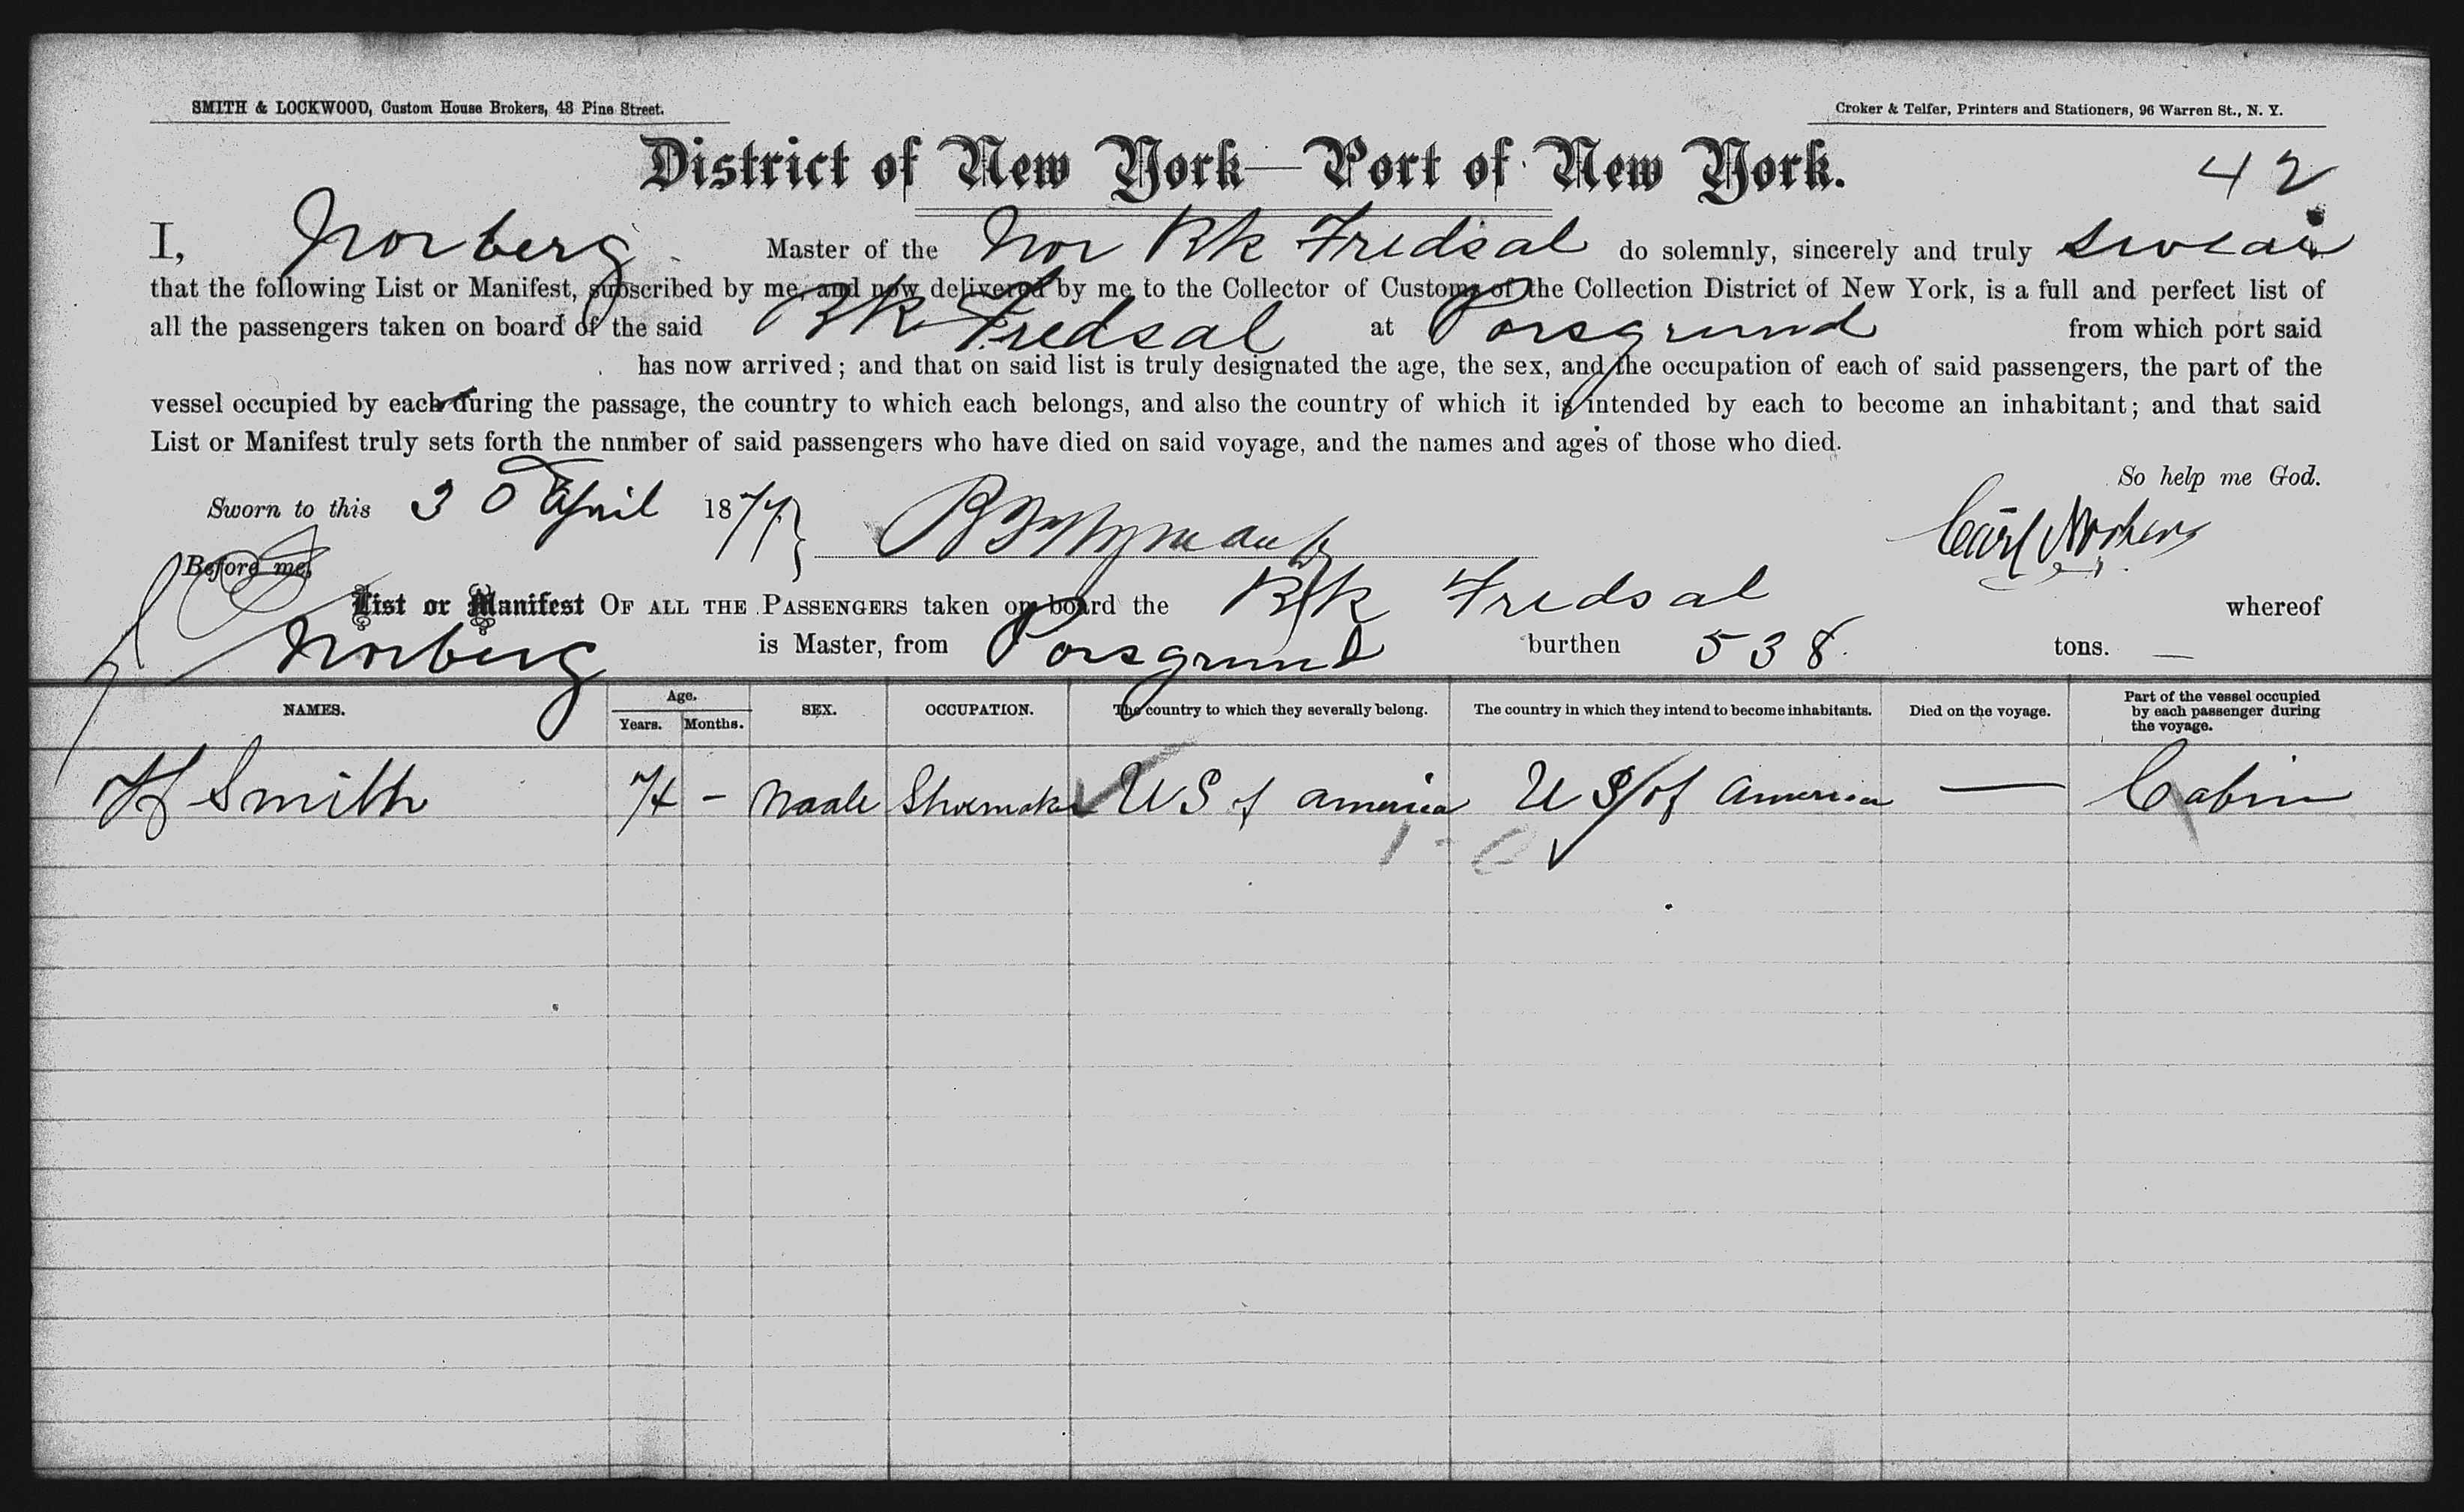 SMITH & LOCKWOOD, Custom House Brokers, 48 Pine Street.
Croker & Telfer, Printers and Stationers, 96 Warren St., N. Y.
District of New York—Port of New York.
42
I, Norberg Master of the Nor Bk Fredsal do solemnly, sincerely and truly swear
that the following List or Manifest, subscribed by me, and now delivered by me to the Collector of Customs of the Collection District of New York, is a full and perfect list of
all the passengers taken on board of the said Bk Fredsal at Porsgrund from which port said
has now arrived; and that on said list is truly designated the age, the sex, and the occupation of each of said passengers, the part of the
vessel occupied by each during the passage, the country to which each belongs, and also the country of which it is intended by each to become an inhabitant; and that said
List or Manifest truly sets forth the nnmber of said passengers who have died on said voyage, and the names and ages of those who died.
So help me God.
Sworn to this 30 April 1877 Carl Norberg
Before me,
List or Manifest OF ALL THE PASSENGERS taken on board the Bk Fredsal whereof
Norberg is Master, from Porsgrund burthen 538 tons. —
NAMES. Age. Years. Months. SEX. OCCUPATION. The country to which they severally belong. The country in which they intend to become inhabitants. Died on the voyage. Part of the vessel occupied by each passenger during the voyage.
H Smith 74 - Maale Shoemaker US of America US of America — Cabin